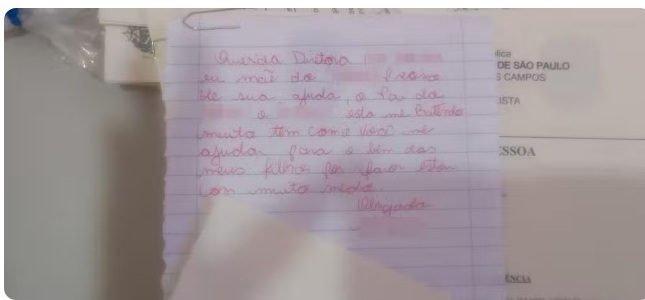 Querida Diretora
eu mãe do preciso
de sua ajuda, o Pai da
e esta me Batendo
muito tem como você me
ajuda para o bem dos
meus filhos por favor estou
com muito medo.
Obrigada
DE SÃO PAULO
S CAMPOS
ISTA
SSOA
ÊNCIA